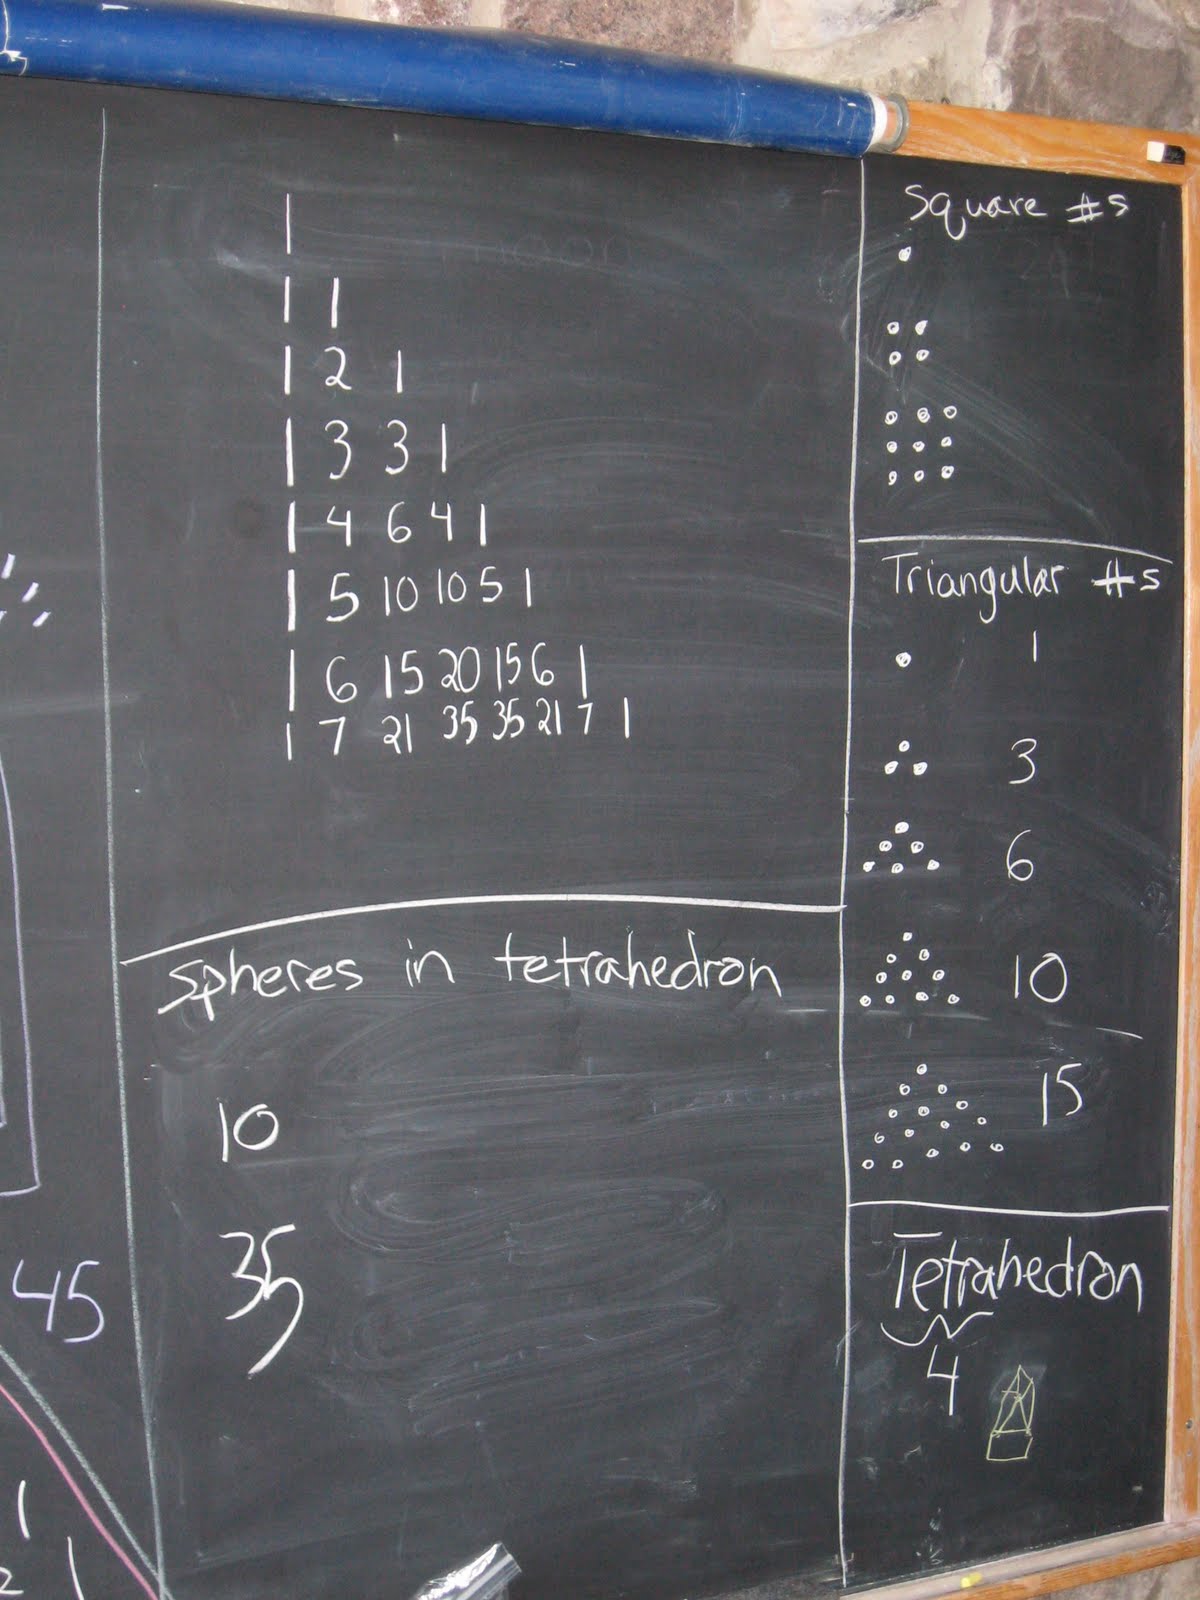 1
1 1
1 2 1
1 3 3 1
1 4 6 4 1
1 5 10 10 5 1
1 6 15 20 15 6 1
1 7 21 35 35 21 7 1
Spheres in tetrahedron
10
35
45
1
2 1
Square #s
Triangular #s
1
3
6
10
15
Tetrahedron
4